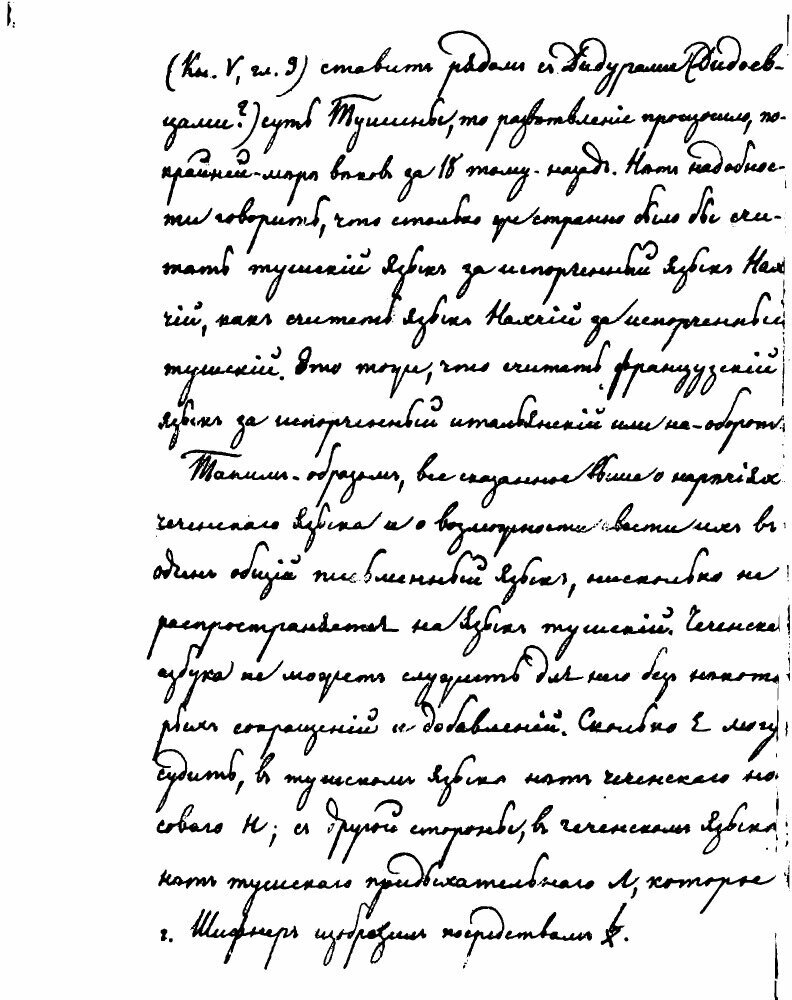 (Кн. V, гл. 9) ставитъ рядомъ съ Дидурами (Дидоев-
цами?) суть Тушины, то развѣтвленіе произошло, по-
крайней-мѣрѣ вѣковъ за 18 тому-назадъ. Нѣтъ надобнос-
ти говорить, что столько же странно было бы счи-
тать тушскій языкъ за испорченный языкъ Нах
чій, какъ считать языкъ Нахчій за испорченный
тушскій. Это тоже, что считать французскій
языкъ за испорченный итальянскій или на-оборотъ.
Такимъ-образомъ, все сказанное выше о нарѣчіяхъ
чеченскаго языка и о возможности свести ихъ въ
одинъ общій письменный языкъ, нисколько не
распространяется на языкъ тушскій. Чеченская
азбука не можетъ служить для него безъ нѣкото
рыхъ сокращеній и добавленій. Сколько я могу
судить, въ тушскомъ языкѣ нѣтъ чеченскаго но-
соваго н; съ другой стороны, въ чеченскомъ языкѣ
нѣтъ тушскаго придыхательнаго л, которое
г. Шифнеръ изобразилъ посредствомъ